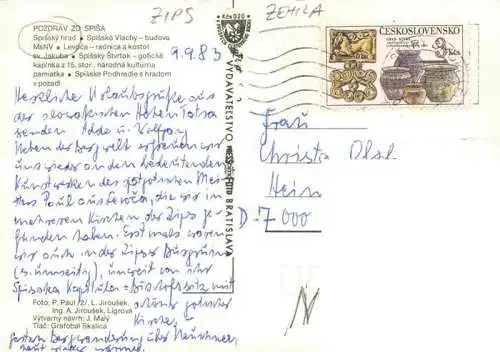 ZIPS
ZEHILA
POZDRAV ZO SPIŠA
Spišský hrad • Spišské Vlachy – budova
MsNV • Levoča – radnica a kostol
sv. Jakuba • Spišský Štvrtok – gotická
kaplnka z 15. stor., národná kultúrna
pamiatka • Spišské Podhradie s hradom
v pozadí
9.9.83
Kčs 0,20
VYDAVATEĽSTVO
BRATISLAVA
ČESKOSLOVENSKO
3 Kčs
Herzliche Urlaubsgrüße aus
der slowakischen Hohen Tatra
senden Adda u. Wolfgang
Neben der Bergwelt erfreuen wir
uns wieder an den bedeutenden
Kunstwerken des spätgotischen Mei-
sters Paul aus Levoča, die wir in
mehreren Kirchen der Zips ge-
funden haben. Erstmals waren
wir auch in der Zipser Burgruine
(s. umseitig), unweit von ihr
Spišská Kapitula = Bischofssitz mit
schöner gotischer
Kirche.
Frau
Christa
Hein
D-7000
Foto: P. Paul /2/ L. Jiroušek,
Ing. A. Jiroušek, Ligrová
Výtvarný návrh: J. Malý
Tlač: Grafobal Skalica
gestern Bergwanderung über
heute wieder